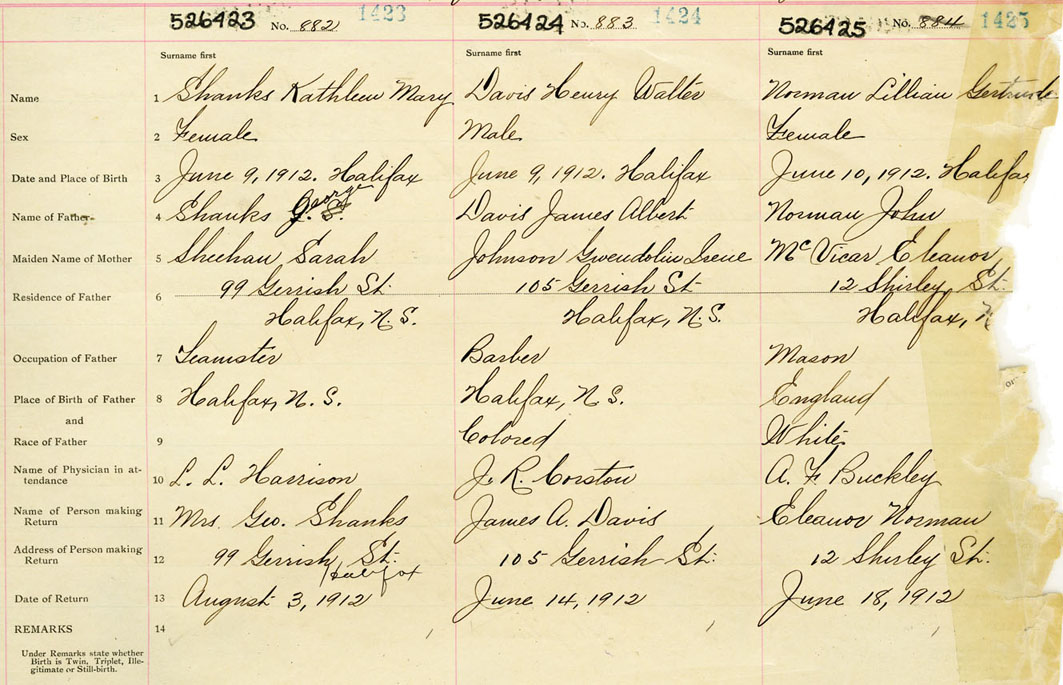 526423 No. 882 1423 526424 No. 883 1424 526425 No. 884 1425
Surname first Surname first Surname first
Name 1 Shanks Kathleen Mary Davis Henry Walter Norman Lillian Gertrude
Sex 2 Female Male Female
Date and Place of Birth 3 June 9, 1912. Halifax June 9, 1912. Halifax June 10, 1912. Halifax
Name of Father 4 Shanks George Davis James Albert Norman John
Maiden Name of Mother 5 Sheehan Sarah Johnson Gwendolin Irene McVicar Eleanor
Residence of Father 6 99 Gerrish St. 105 Gerrish St 12 Shirley St.
Halifax, N.S. Halifax, N.S. Halifax, N
Occupation of Father 7 Teamster Barber Mason
Place of Birth of Father 8 Halifax, N.S. Halifax, N S. England
and
Race of Father 9 Colored White
Name of Physician in at-
tendance 10 L. L. Harrison J. R. Corston A. F. Buckley
Name of Person making
Return 11 Mrs. Geo. Shanks James A. Davis Eleanor Norman
Address of Person making
Return 12 99 Gerrish St. 105 Gerrish St. 12 Shirley St.
Halifax
Date of Return 13 August 3, 1912 June 14, 1912 June 18, 1912
REMARKS 14
Under Remarks state whether
Birth is Twin, Triplet, Ille-
gitimate or Still-birth.